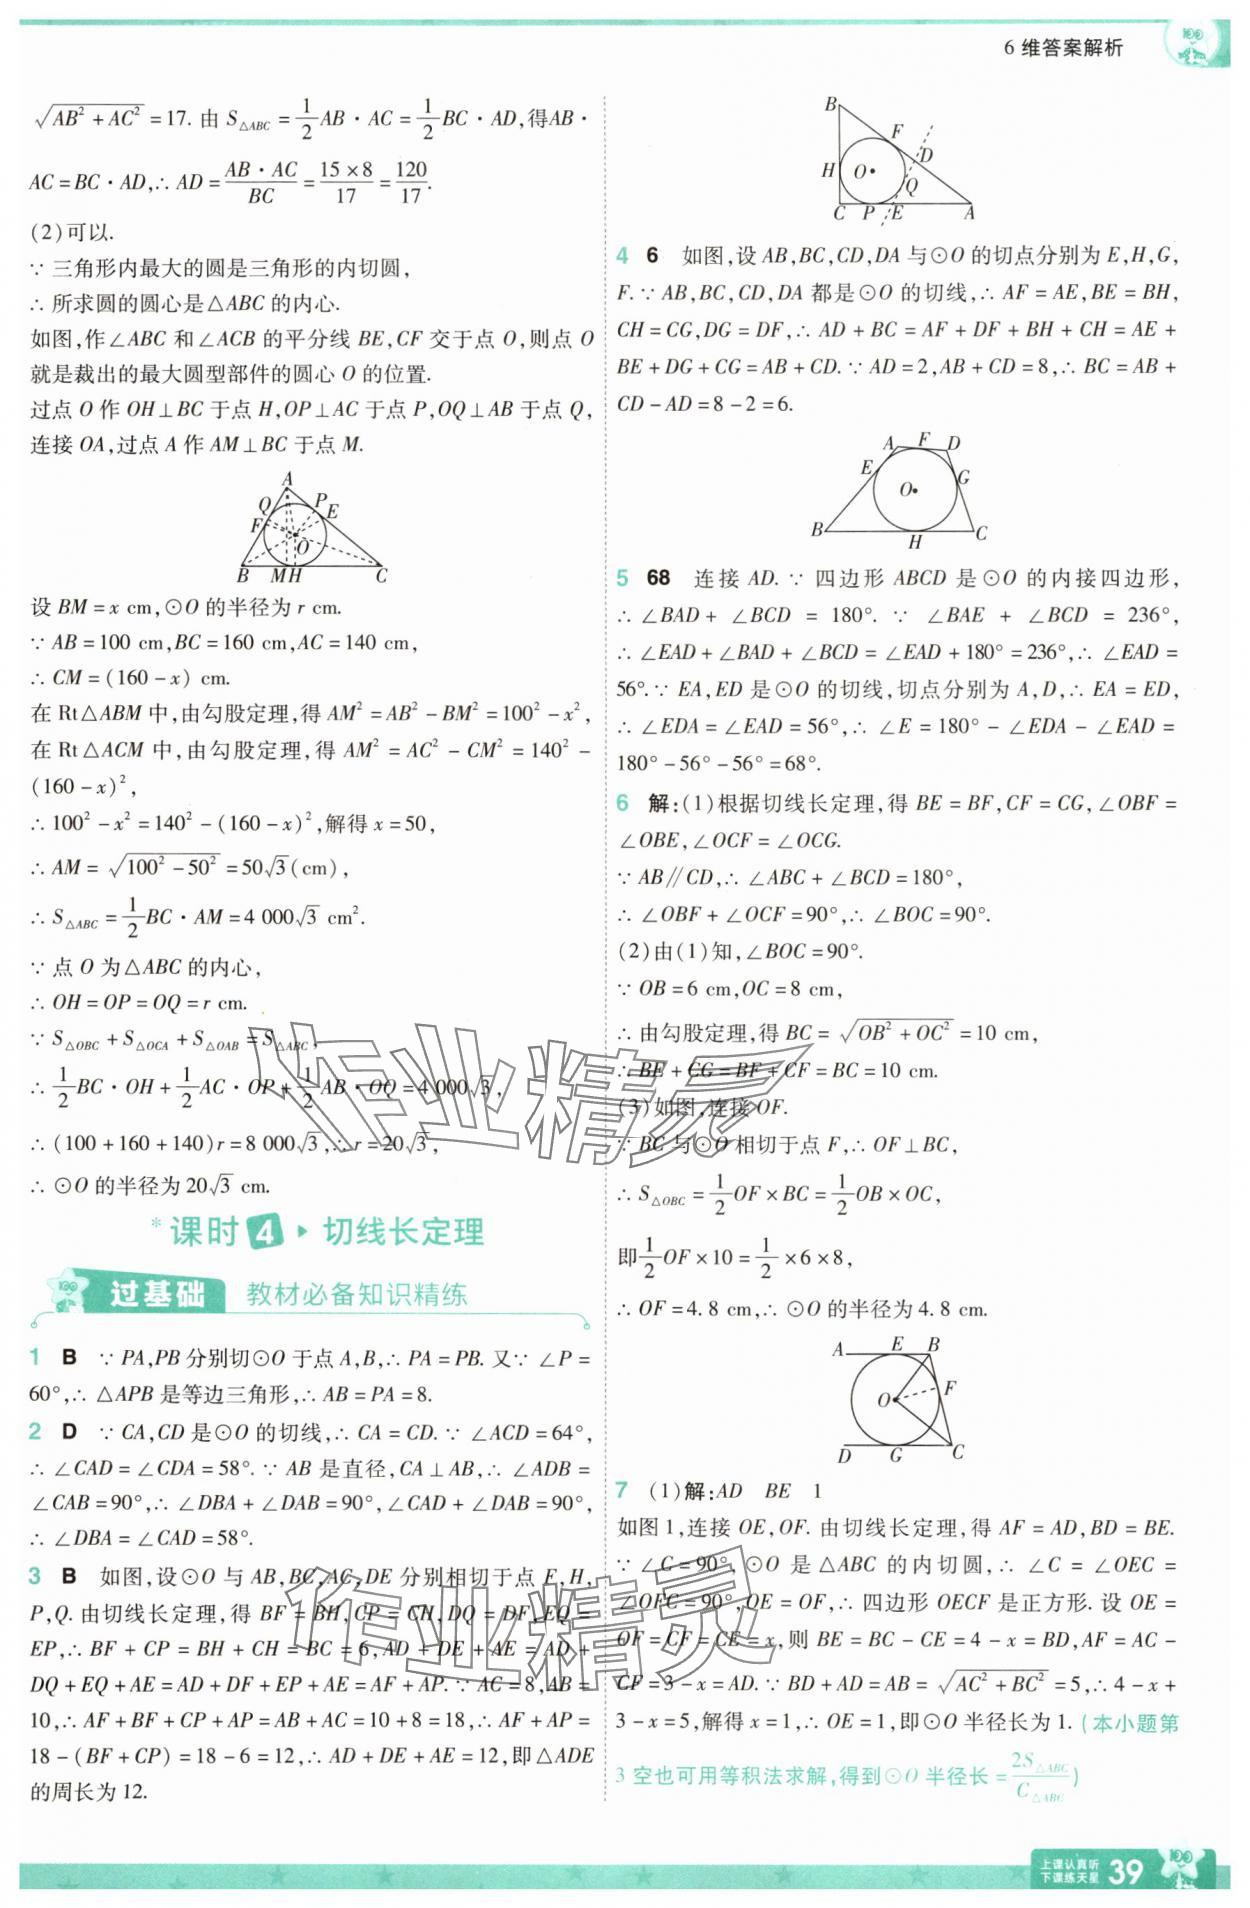 6 维答案解析
√(AB²+AC²)=17. 由 S△ABC=1/2AB·AC=1/2BC·AD,得AB·
AC=BC·AD,∴ AD=AB·AC/BC=15×8/17=120/17.
(2)可以.
∵ 三角形内最大的圆是三角形的内切圆,
∴ 所求圆的圆心是△ABC 的内心.
如图,作∠ABC 和∠ACB 的平分线 BE,CF 交于点 O,则点 O
就是裁出的最大圆型部件的圆心 O 的位置.
过点 O 作 OH⊥BC 于点 H,OP⊥AC 于点 P,OQ⊥AB 于点 Q,
连接 OA,过点 A 作 AM⊥BC 于点 M.
A
Q P
F E
O
B M H C
设 BM=x cm,⊙O 的半径为 r cm.
∵ AB=100 cm,BC=160 cm,AC=140 cm,
∴ CM=(160-x) cm.
在 Rt△ABM 中,由勾股定理,得 AM²=AB²-BM²=100²-x²,
在 Rt△ACM 中,由勾股定理,得 AM²=AC²-CM²=140²-
(160-x)²,
∴ 100²-x²=140²-(160-x)²,解得 x=50,
∴ AM=√(100²-50²)=50√3(cm),
∴ S△ABC=1/2BC·AM=4 000√3 cm².
∵ 点 O 为△ABC 的内心,
∴ OH=OP=OQ=r cm.
∵ S△OBC+S△OCA+S△OAB=S△ABC,
∴ 1/2BC·OH+1/2AC·OP+1/2AB·OQ=4 000√3,
∴ (100+160+140)r=8 000√3,∴ r=20√3,
∴ ⊙O 的半径为 20√3 cm.
*课时 4 ▸ 切线长定理
过基础 教材必备知识精练
1 B ∵ PA,PB 分别切⊙O 于点 A,B,∴ PA=PB. 又∵ ∠P=
60°,∴ △APB 是等边三角形,∴ AB=PA=8.
2 D ∵ CA,CD 是⊙O 的切线,∴ CA=CD. ∵ ∠ACD=64°,
∴ ∠CAD=∠CDA=58°. ∵ AB 是直径,CA⊥AB,∴ ∠ADB=
∠CAB=90°,∴ ∠DBA+∠DAB=90°,∠CAD+∠DAB=90°,
∴ ∠DBA=∠CAD=58°.
3 B 如图,设⊙O 与 AB,BC,AC,DE 分别相切于点 F,H,
P,Q. 由切线长定理,得 BF=BH,CP=CH,DQ=DF,EQ=
EP,∴ BF+CP=BH+CH=BC=6,AD+DE+AE=AD+
DQ+EQ+AE=AD+DF+EP+AE=AF+AP. ∵ AC=8,AB=
10,∴ AF+BF+CP+AP=AB+AC=10+8=18,∴ AF+AP=
18-(BF+CP)=18-6=12,∴ AD+DE+AE=12,即△ADE
的周长为 12.
B
F
D
H O
Q
C P E A
4 6 如图,设 AB,BC,CD,DA 与⊙O 的切点分别为 E,H,G,
F. ∵ AB,BC,CD,DA 都是⊙O 的切线,∴ AF=AE,BE=BH,
CH=CG,DG=DF,∴ AD+BC=AF+DF+BH+CH=AE+
BE+DG+CG=AB+CD. ∵ AD=2,AB+CD=8,∴ BC=AB+
CD-AD=8-2=6.
A F D
E G
O
B H C
5 68 连接 AD. ∵ 四边形 ABCD 是⊙O 的内接四边形,
∴ ∠BAD+∠BCD=180°. ∵ ∠BAE+∠BCD=236°,
∴ ∠EAD+∠BAD+∠BCD=∠EAD+180°=236°,∴ ∠EAD=
56°. ∵ EA,ED 是⊙O 的切线,切点分别为 A,D,∴ EA=ED,
∴ ∠EDA=∠EAD=56°,∴ ∠E=180°-∠EDA-∠EAD=
180°-56°-56°=68°.
6 解:(1)根据切线长定理,得 BE=BF,CF=CG,∠OBF=
∠OBE,∠OCF=∠OCG.
∵ AB∥CD,∴ ∠ABC+∠BCD=180°,
∴ ∠OBF+∠OCF=90°,∴ ∠BOC=90°.
(2)由(1)知,∠BOC=90°.
∵ OB=6 cm,OC=8 cm,
∴ 由勾股定理,得 BC=√(OB²+OC²)=10 cm,
∴ BE+CG=BF+CF=BC=10 cm.
(3)如图,连接 OF.
∵ BC 与⊙O 相切于点 F,∴ OF⊥BC,
∴ S△OBC=1/2OF×BC=1/2OB×OC,
即1/2OF×10=1/2×6×8,
∴ OF=4.8 cm,∴ ⊙O 的半径为 4.8 cm.
A E B
O F
D G C
7 (1)解:AD BE 1
如图 1,连接 OE,OF. 由切线长定理,得 AF=AD,BD=BE.
∵ ∠C=90°,⊙O 是△ABC 的内切圆,∴ ∠C=∠OEC=
∠OFC=90°,OE=OF,∴ 四边形 OECF 是正方形. 设 OE=
OF=CF=CE=x,则 BE=BC-CE=4-x=BD,AF=AC-
CF=3-x=AD. ∵ BD+AD=AB=√(AC²+BC²)=5,∴ 4-x+
3-x=5,解得 x=1,∴ OE=1,即⊙O 半径长为 1. (本小题第
3 空也可用等积法求解,得到⊙O 半径长=2S△ABC/C△ABC)
作业精灵
作业精灵
上课认真听
下课练天星 39